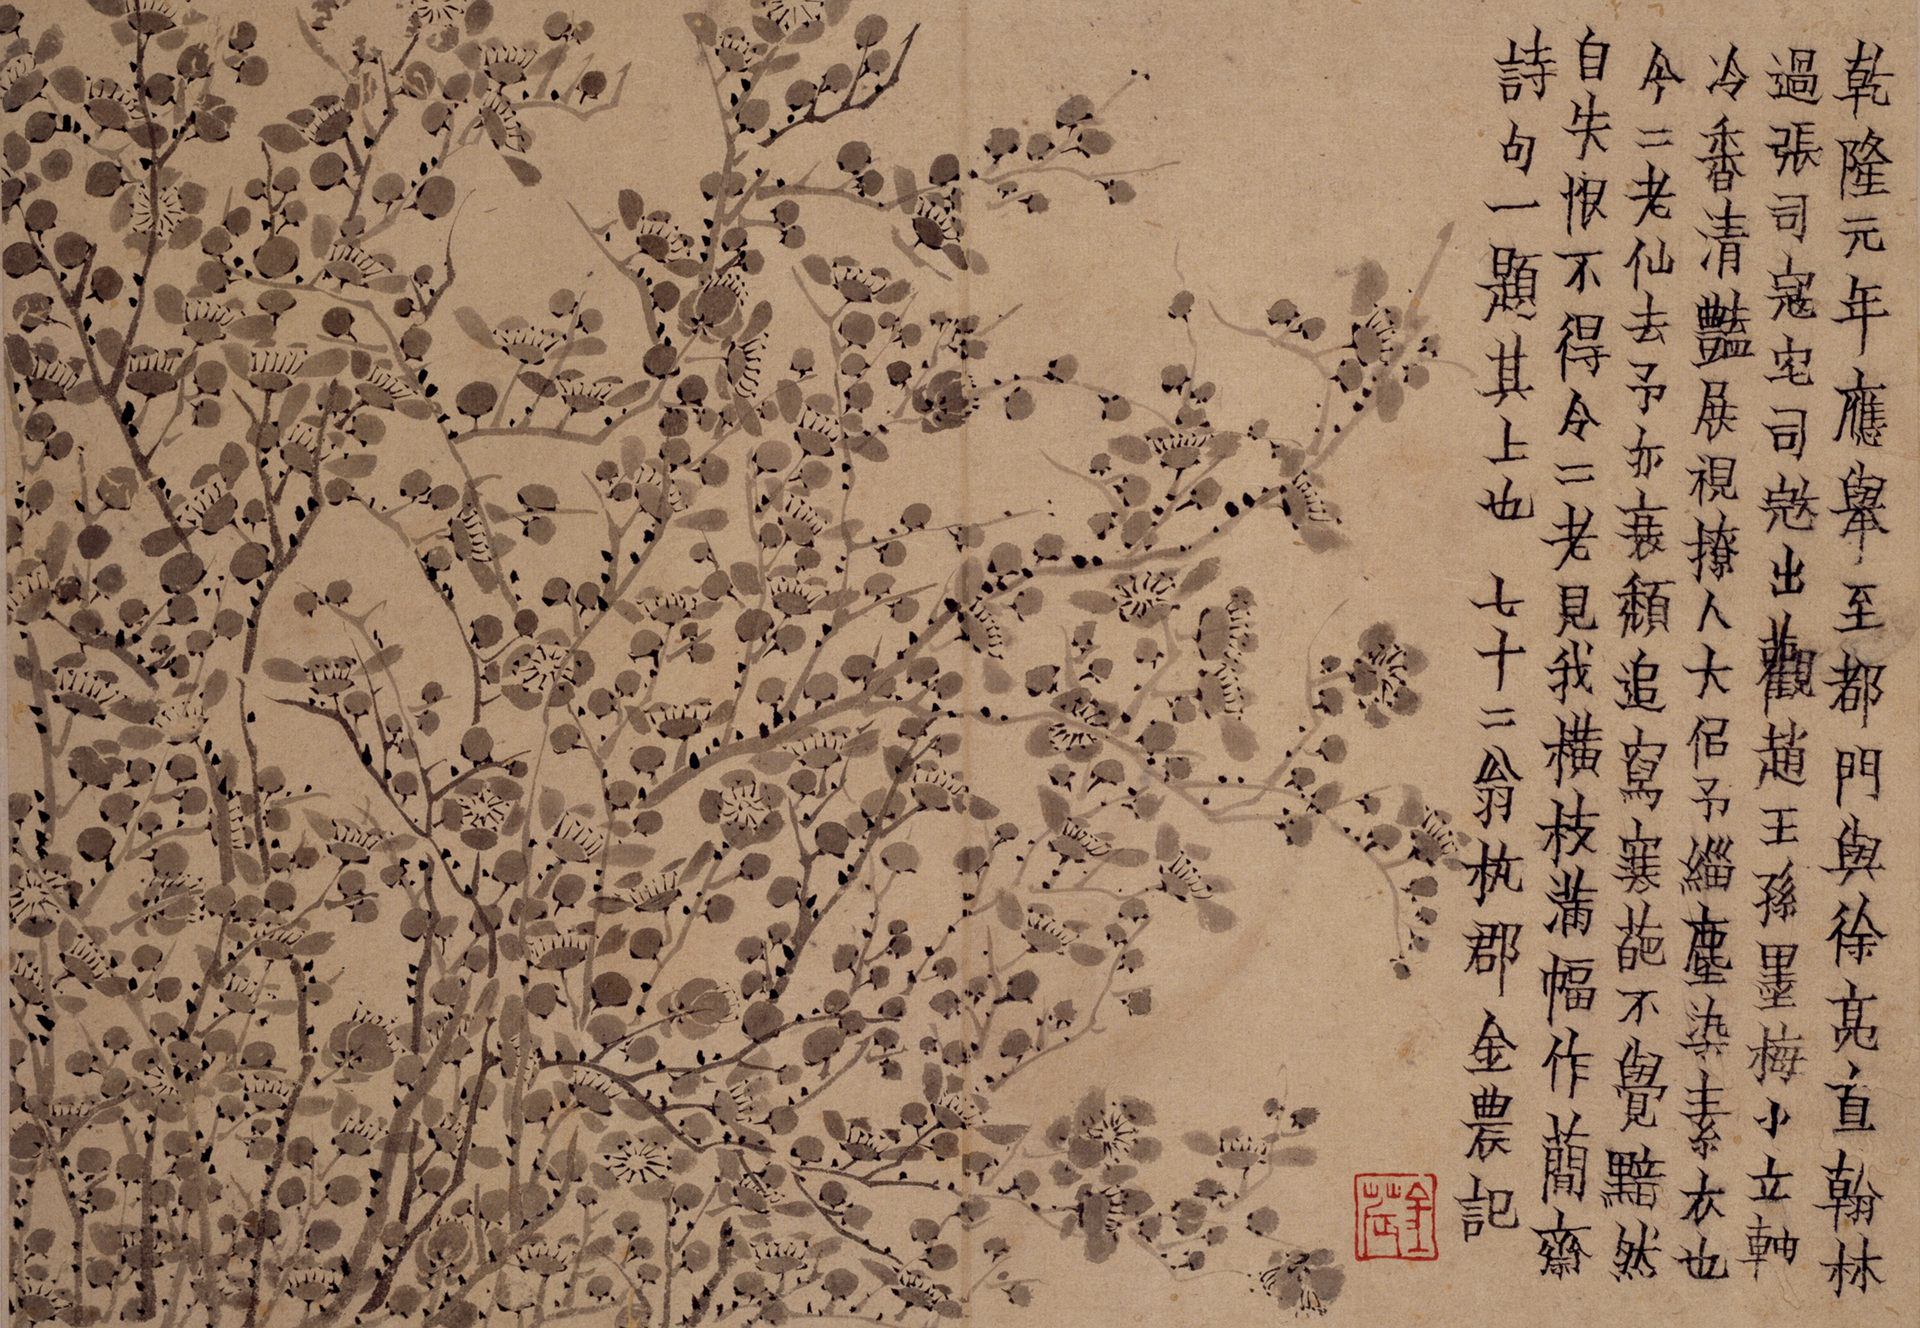 乾隆元年應舉至都門與徐亮直翰林
過張司寇宅司寇出觀趙王孫墨梅小立軸
冷香清豔展視撩人大侶予緇塵染素衣也
今二老仙去予亦衰頹追寫寒葩不覺黯然
自失恨不得令二老見我橫枝滿幅作蕳齋
詩句一題其上也 七十二翁杭郡金農記
金農